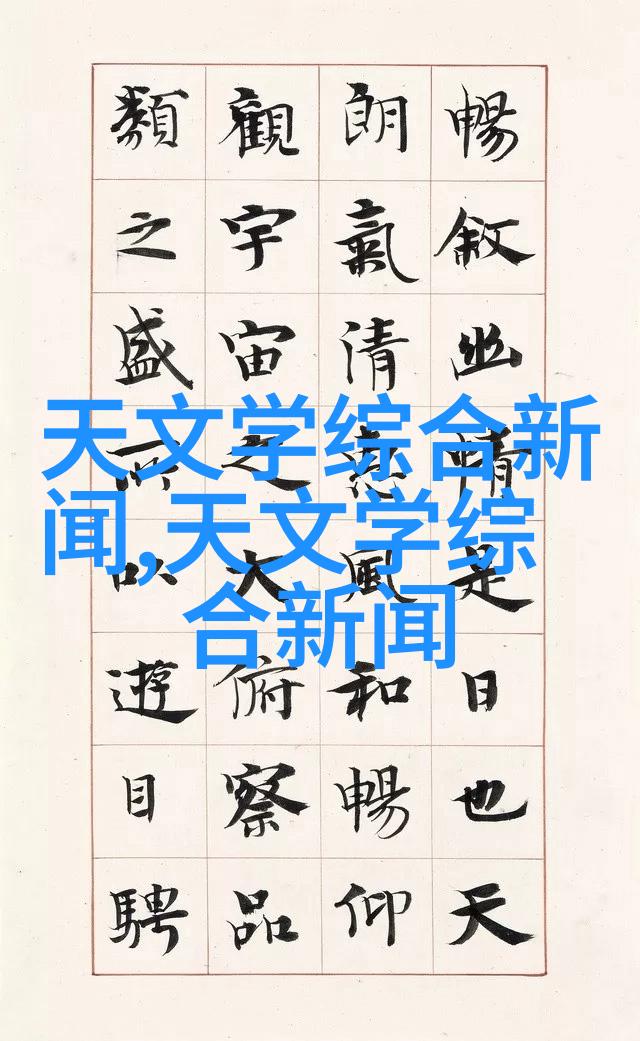 暢敘幽情是日也天
朗氣清惠風和暢仰
觀宇宙之大俯察品
類之盛所以遊目騁
天文学综合新
闻,天文学综
合新闻